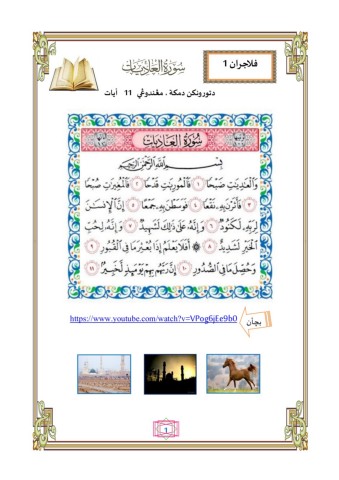 فلاجران 1
سورة العاديات
دتورونكن دمكة ، مڠندوڠي 11 أيات
سورة العاديات
بسم الله الرحمن الرحيم
وَالْعَٰدِيَٰتِ ضَبْحًا ١ فَالْمُورِيَٰتِ قَدْحًا ٢ فَالْمُغِيرَٰتِ صُبْحًا
٣ فَأَثَرْنَ بِهِۦ نَقْعًا ٤ فَوَسَطْنَ بِهِۦ جَمْعًا ٥ إِنَّ الْإِنسَٰنَ
لِرَبِّهِۦ لَكَنُودٌ ٦ وَإِنَّهُۥ عَلَىٰ ذَٰلِكَ لَشَهِيدٌ ٧ وَإِنَّهُۥ لِحُبِّ
الْخَيْرِ لَشَدِيدٌ ٨ ۞ أَفَلَا يَعْلَمُ إِذَا بُعْثِرَ مَا فِي الْقُبُورِ ٩
وَحُصِّلَ مَا فِي الصُّدُورِ ١٠ إِنَّ رَبَّهُم بِهِمْ يَوْمَئِذٍ لَّخَبِيرٌۢ ١١
بچأن
https://www.youtube.com/watch?v=VPog6jEe9b0
1